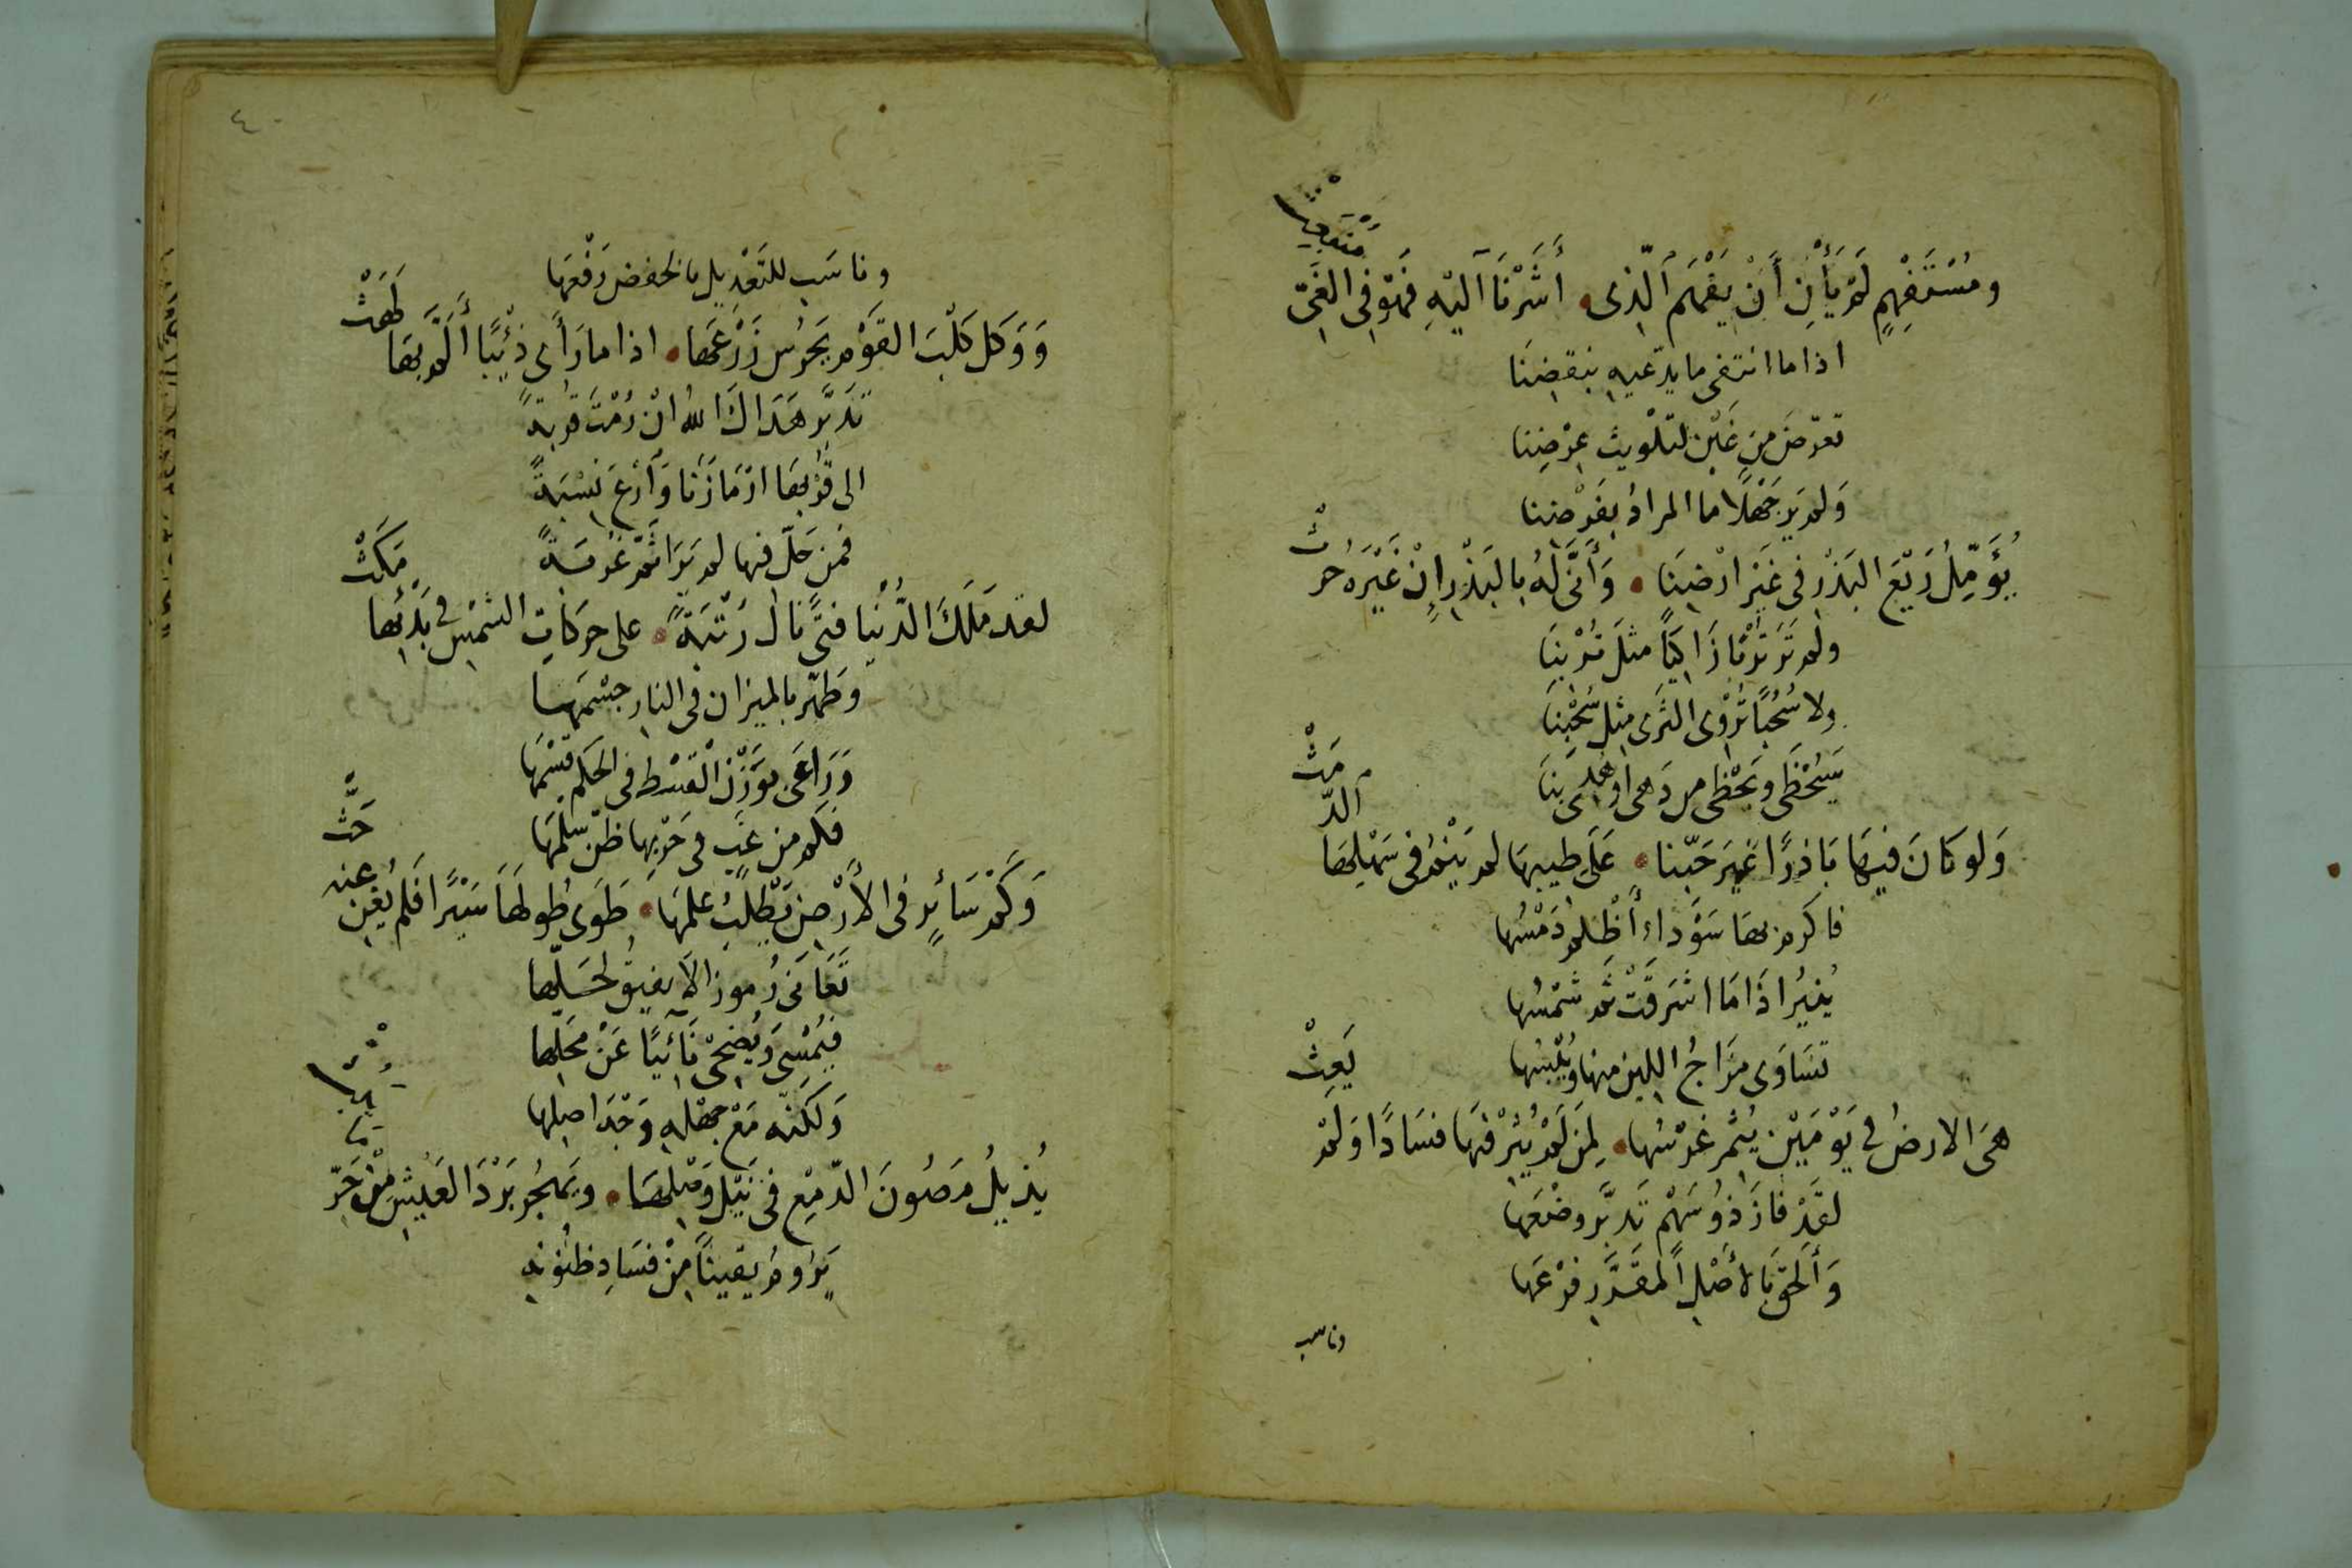 ومُسْتَفْهِمٍ لَمْ يَأْنِ أَنْ يَفْهَم الَّذِى أَشَرْنَا اليْهِ فَهْوَ فِى الغَىِّ
اذا ما انتفى ما يدّعيه بنقضِنَا
تعرّض من غَبْنٍ لتلْويث عِرْضِنا
وَلم يدرِ جَهْلاً ما المرادُ بفَرْضِنا
يُؤَمِّلُ رَيْعَ البَذْرِ فى غَيْر ارْضِنَا وَأَنَّى لَهُ بالبَذْرِ إنْ غَيْرَه حرُثْ
ولم تَرَ تُرْبًا زَاكيًا مثلَ تُرْبِنَا
ولا سُحُبًا تُرْوِى الثَرَى مثلَ سُحْبِنَا
وَلو كانَ فيهَا بَاذِرًا غيرَ حَبّنا عَلَى طيبهَا لم يَنْمُ فى سَهْلِها الدَّمَثْ
فاكرم بها سَوْداءَ أَظْلم دَمْسُها
يُنيرُ اذَا مَا اشرَقَتْ ثم شمْسُها
تسَاوَى مزَاجُ اللين منها ويُبْسُها
هىَ الارضُ فى يَوْمَيْن يُثمر غرْسُها لِمَنْ لَمْ يُثِرْ فيهَا فسَادًا وَلمْ يَعِثْ
لقَدْ فازَ ذُو سَهْمٍ تَدبَّر وضْعَها
وَأَلحَقَ بالأصْلِ المقَدَّرِ فرْعَها
وناسب
٤٠
وناسَب للتَعْدِيل بالخفض رَفْعَهَا
وَوَكل كَلْبَ القَوْم يَحْرُس زَرْعَها اذا ما رَأَى ذئْبًا أَلَمَّ بهَا لَهَثْ
تَدَبَّر هَدَاكَ اللهُ انْ رُمْتَ قُرْبةً
الى قُرْبهَا ارْمَازَنَا وَارْعَ نِسْبَةً
فمن حَلّ فيها لم يَرَ ثَمَّ غُرْبَةً
لقد مَلَكَ الدُّنْيا فتًى نال رُتْبَةً على حركاتِ الشمْسِ فى بَدْئِها مَكَثْ
وطَهّر بالميزان فى النارِ جسْمَها
وَرَاعَى بوَزْنِ القسْطِ فى الحكم قسْمَهَا
فكم من غبٍ فى حَرْبِها ظنّ سلمَهَا
وَكَمْ سَائرٍ فى الأرْضِ يَطْلبُ علمَهَا طَوَى طُولهَا سَيْرًا فَلم يُغنِ عنه حَثّْ
تَعَانَى رُموزا لا يفيق لحَلّها
فيُمْسِى وَيُضْحِىْ نَائيًا عَنْ مَحَلّها
وَلكنّه مَعْ جهْله وَجْدَ اصلِها
يُذِيلُ مَصُونَ الدّمْعِ فى نَيْل وَصْلِهَا ويَهْجُر بَرْدَ العَيْشِ مِنْ حَرِّ
يَرُومُ يقينًا مِنْ فسَادِ ظنُونِهِ